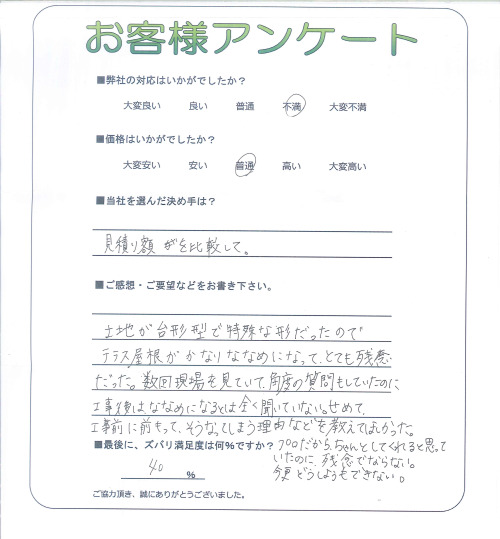 お客様アンケート
■弊社の対応はいかがでしたか？
大変良い 良い 普通 不満 大変不満
■価格はいかがでしたか？
大変安い 安い 普通 高い 大変高い
■当社を選んだ決め手は？
見積り額 を比較して。
■ご感想・ご要望などをお書き下さい。
土地が台形型で特殊な形だったので
テラス屋根がかなりななめになって、とても残念
だった。数回現場を見ていて、角度の質問もしていたのに
工事後はななめになるとは全く聞いていない。せめて、
工事前に前もって、そうなってしまう理由などを教えてほしかった。
■最後に、ズバリ満足度は何%ですか？
40 %
プロだから、ちゃんとしてくれると思って
いたのに、残念でならない。
今更どうしようもできない。
ご協力頂き、誠にありがとうございました。